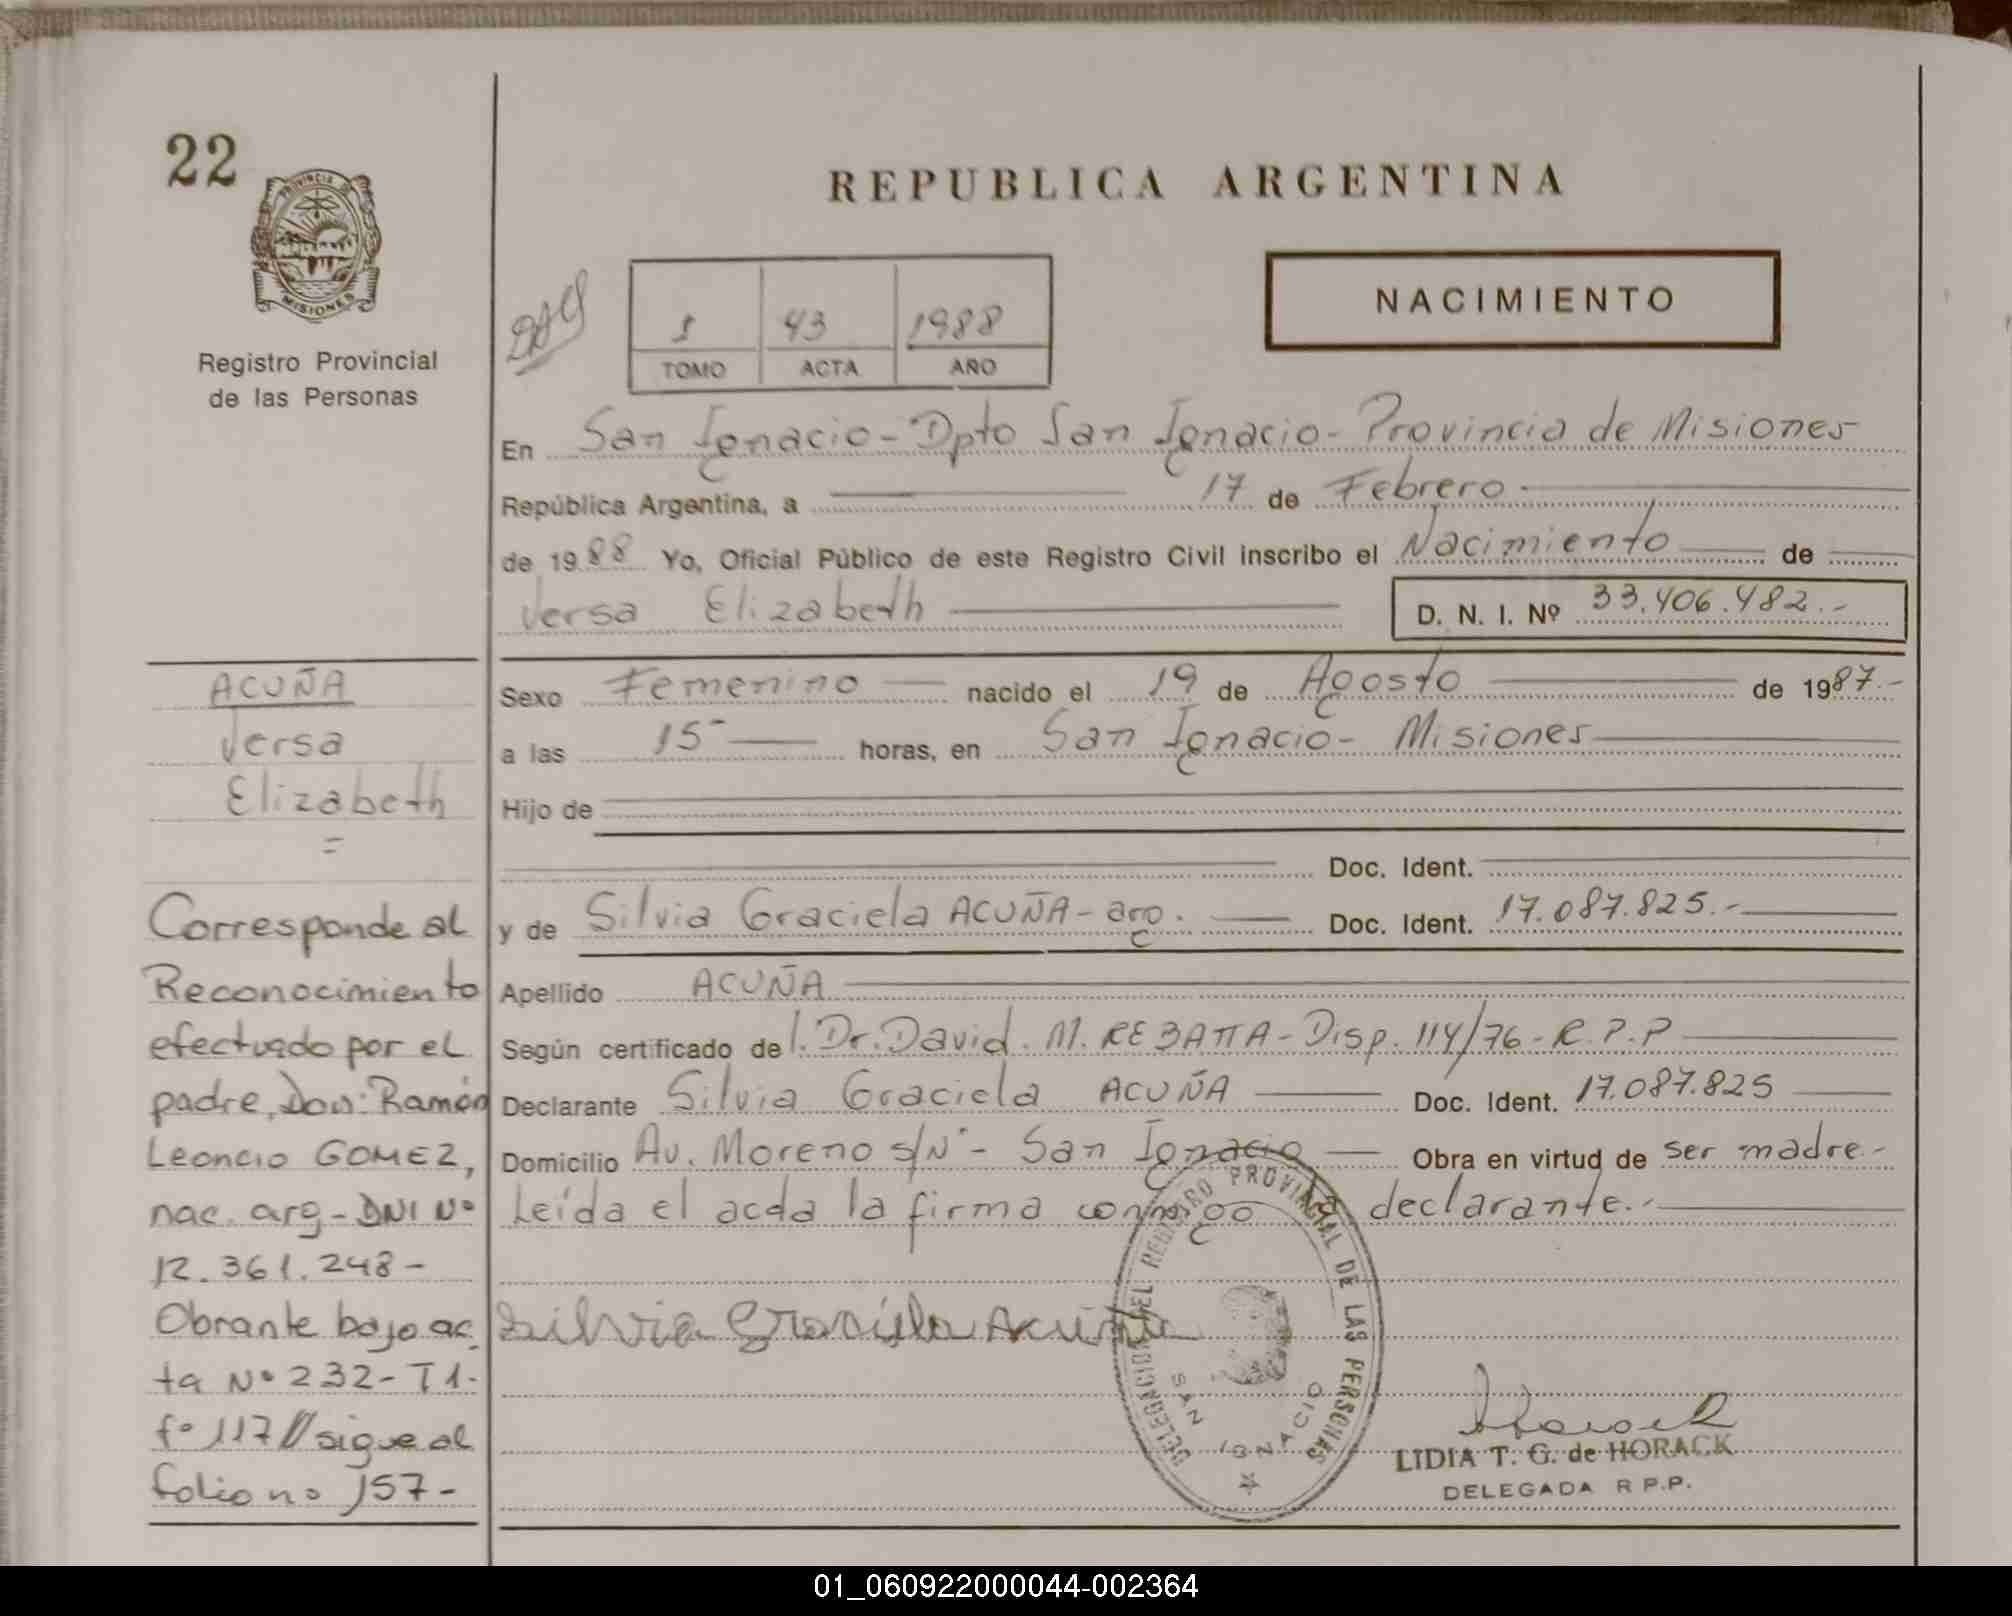 22
PROVINCIA DE
MISIONES
Registro Provincial
de las Personas
REPUBLICA ARGENTINA
NACIMIENTO
1 43 1988
TOMO ACTA AÑO
En San Ignacio - Dpto San Ignacio - Provincia de Misiones
República Argentina, a 17 de Febrero
de 1988 Yo, Oficial Público de este Registro Civil inscribo el Nacimiento de
Versa Elizabeth D. N. I. Nº 33.406.482.-
Sexo Femenino nacido el 19 de Agosto de 1987.-
a las 15 horas, en San Ignacio - Misiones
Hijo de
Doc. Ident.
y de Silvia Graciela ACUÑA - arg. Doc. Ident. 17.087.825.-
Apellido ACUÑA
Según certificado del. Dr. David. M. REBATTA - Disp. 114/76 - R.P.P
Declarante Silvia Graciela ACUÑA Doc. Ident. 17.087.825
Domicilio Av. Moreno s/Nº - San Ignacio Obra en virtud de ser madre.-
Leída el acda la firma conmigo la declarante.-
Silvia Graciela Acuña
DELEGACION DEL REGISTRO PROVINCIAL DE LAS PERSONAS
SAN IGNACIO
Horack
LIDIA T. G. de HORACK
DELEGADA R P.P.
ACUÑA
Versa
Elizabeth
=
Corresponde al
Reconocimiento
efectuado por el
padre, Don: Ramón
Leoncio GOMEZ,
nac. arg - DNI Nº
12.361.248 -
Obrante bajo ac
ta Nº 232 - T1 -
fº 117 // sigue al
folio nº 157 -
01_060922000044-002364